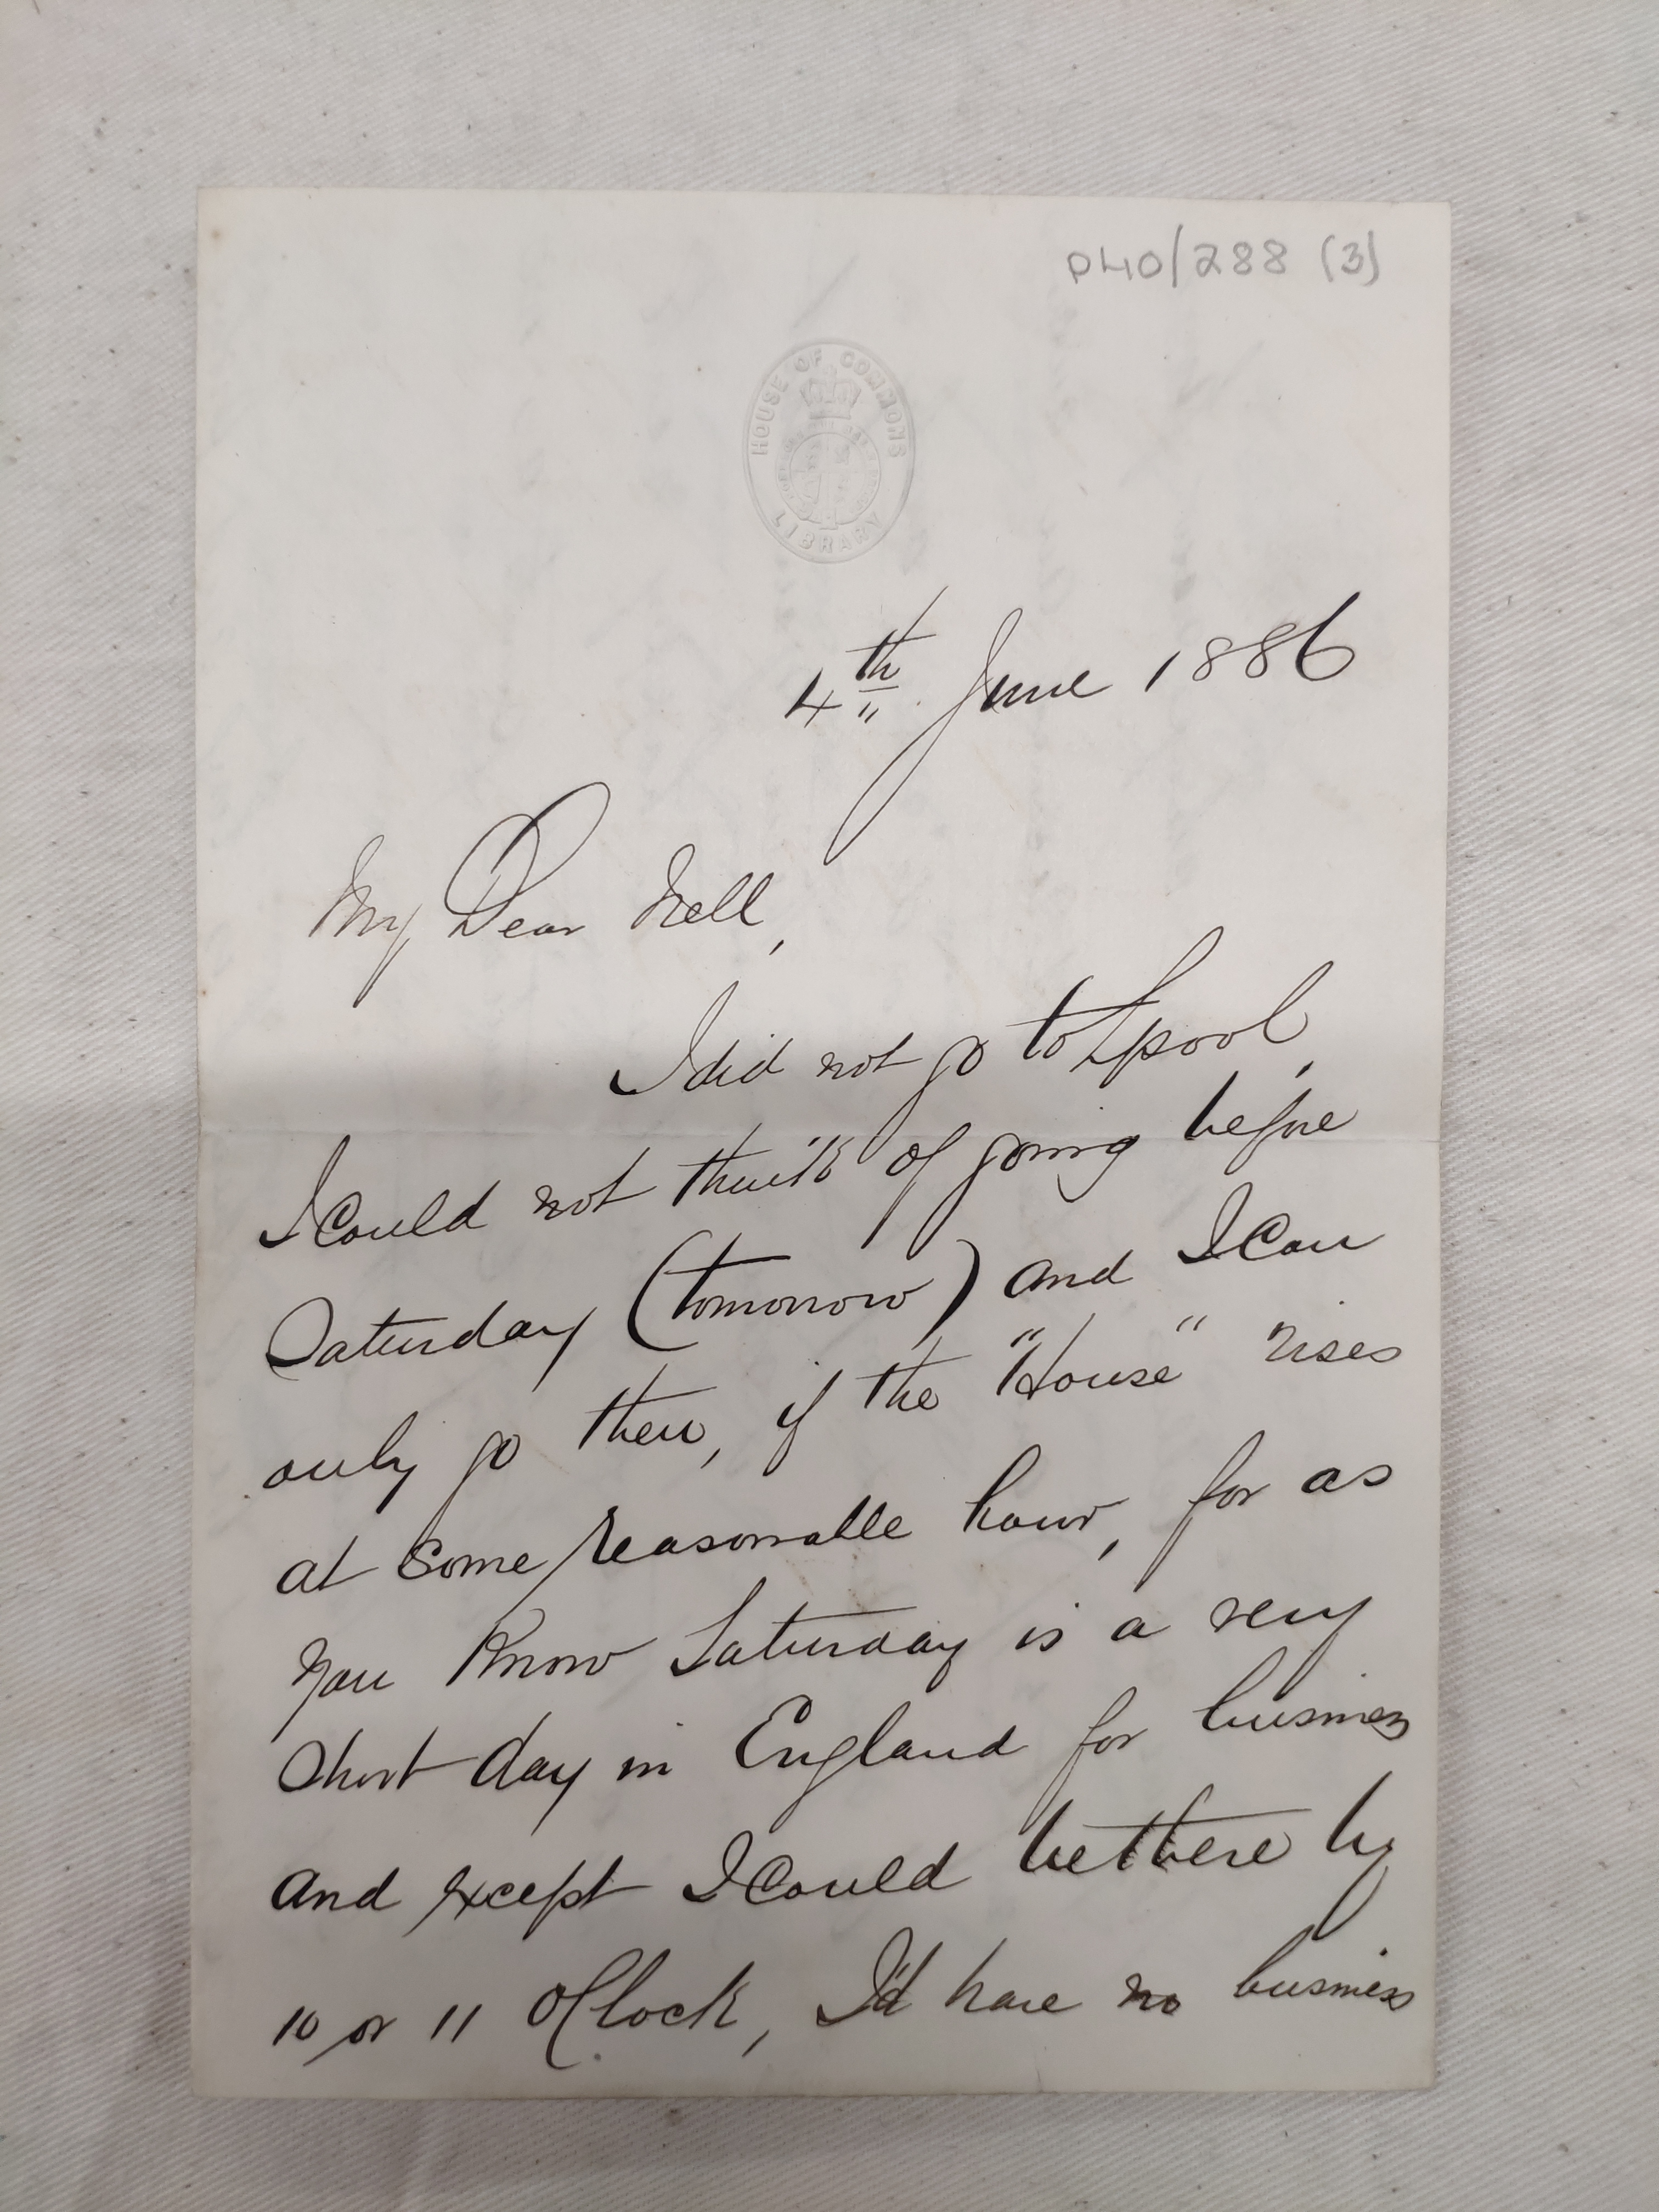 P40/288 (3)
HOUSE OF COMMONS
LIBRARY
4th June 1886
My Dear Nell,
I did not go to Lpool,
I Could not think of going before
Saturday (tomorrow) and I Can
only go then, if the "House" rises
at Some reasonable hour, for as
you Know Saturday is a very
Short day in England for business
and except I Could be there by
10 or 11 OClock, I'd have no business